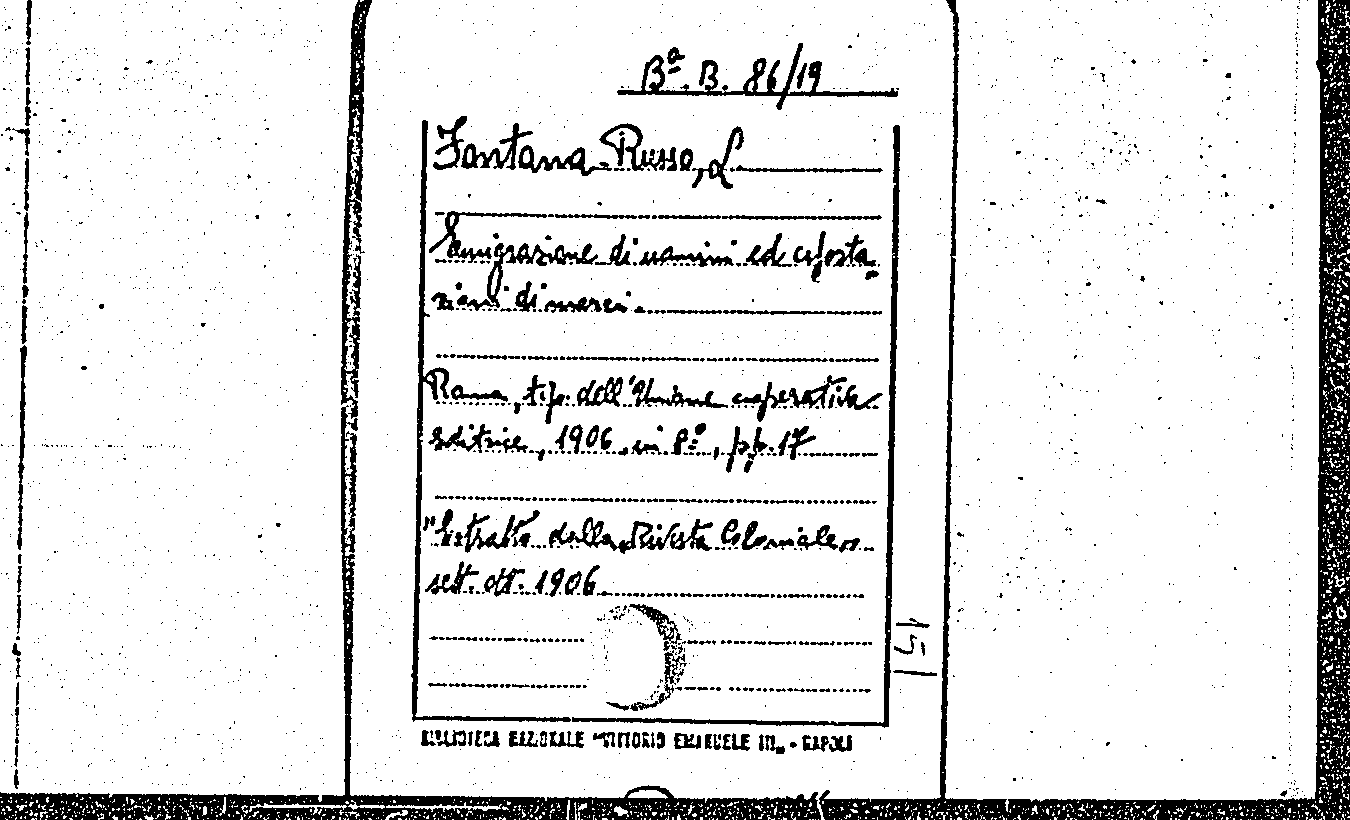 Bª. B. 86/19
Fontana-Russo, L.
Emigrazione di uomini ed esporta-
zioni di merci.
Roma, tip. dell'Unione cooperativa
editrice, 1906, in 8º, pp. 17
"Estratto dalla Rivista Coloniale"
sett. ott. 1906.
151
BIBLIOTECA NAZIONALE "VITTORIO EMANUELE III" - NAPOLI